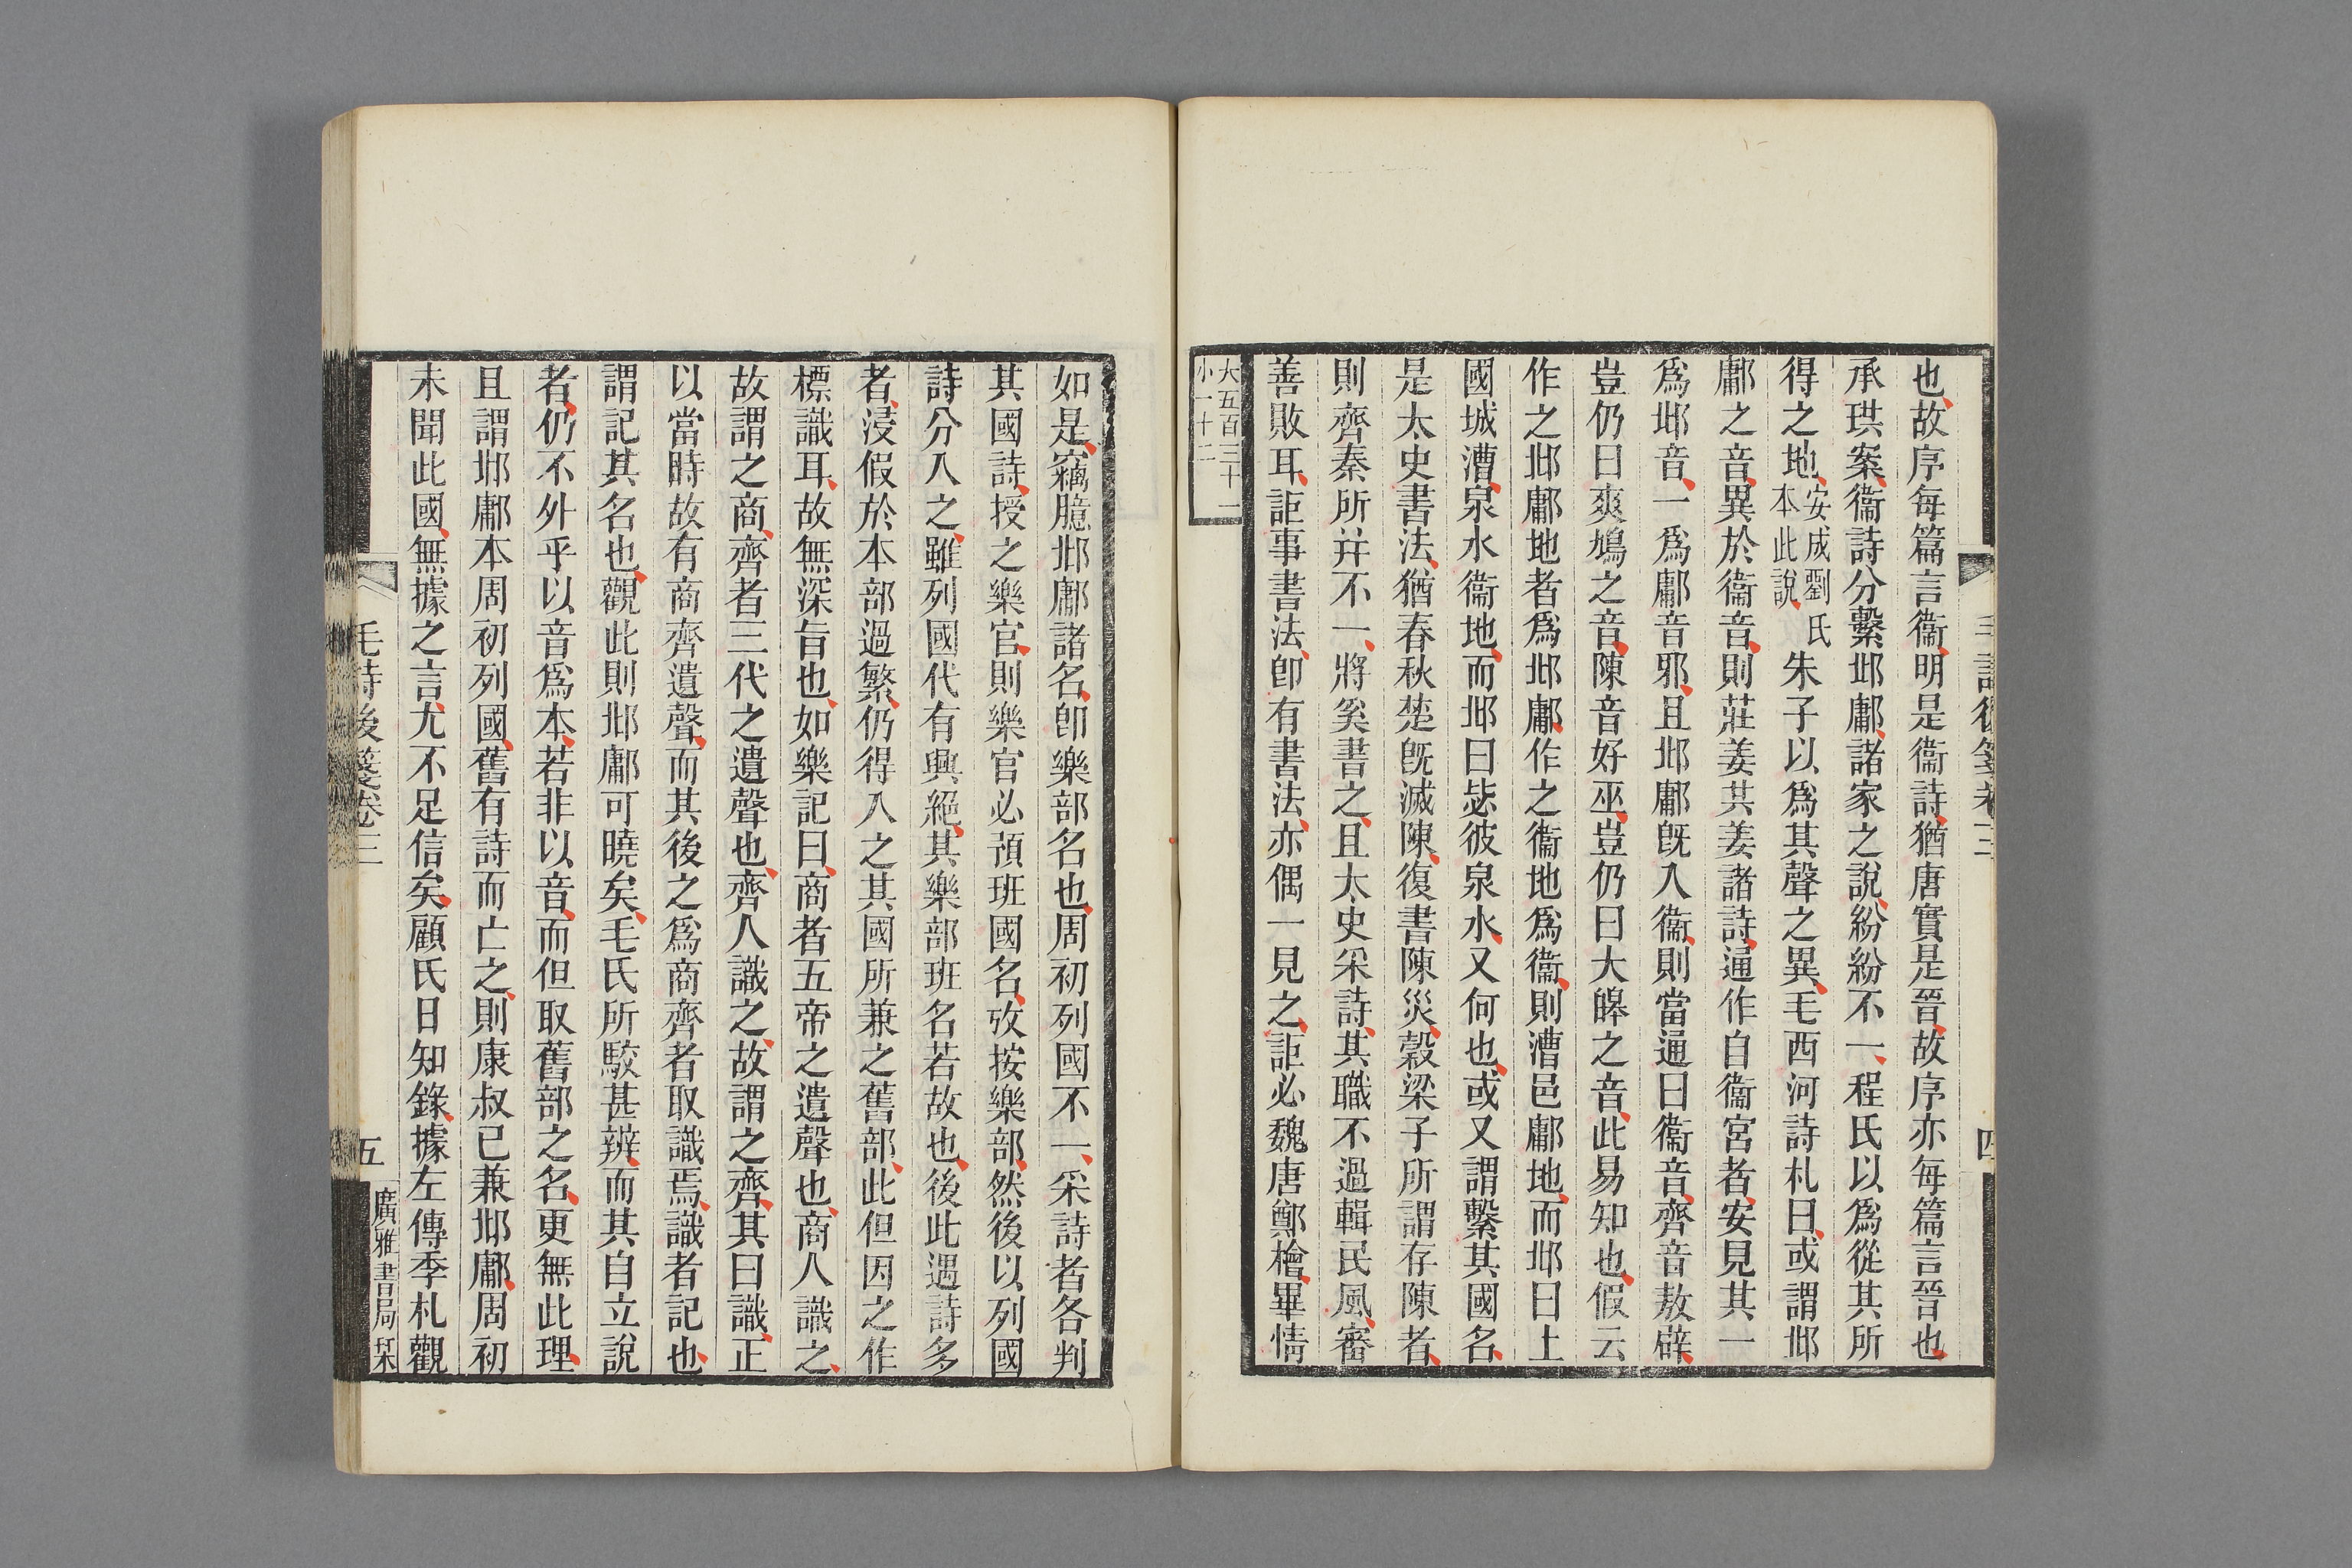 毛詩後箋卷三
四
也故序每篇言衞明是衞詩猶唐實是晉故序亦每篇言晉也
承珙案衞詩分繫邶鄘諸家之說紛紛不一程氏以爲從其所
得之地安成劉氏本此說朱子以爲其聲之異毛西河詩札曰或謂邶
鄘之音異於衞音則莊姜共姜諸詩通作自衞宮者安見其一
爲邶音一爲鄘音邪且邶鄘旣入衞則當通曰衞音齊音敖辟
豈仍曰爽鳩之音陳音好巫豈仍曰大皞之音此易知也假云
作之邶鄘地者爲邶鄘作之衞地爲衞則漕邑鄘地而邶曰土
國城漕泉水衞地而邶曰毖彼泉水又何也或又謂繫其國名
是太史書法猶春秋楚旣滅陳復書陳災穀梁子所謂存陳者
則齊秦所并不一將奚書之且太史采詩其職不過輯民風審
善敗耳詎事書法卽有書法亦偶一見之詎必魏唐鄭檜畢情
大五百三十一
小一十二
如是竊臆邶鄘諸名卽樂部名也周初列國不一采詩者各判
其國詩授之樂官則樂官必預班國名攷按樂部然後以列國
詩分入之雖列國代有興絕其樂部班名若故也後此遇詩多
者浸假於本部過繁仍得入之其國所兼之舊部此但因之作
標識耳故無深旨也如樂記曰商者五帝之遺聲也商人識之
故謂之商齊者三代之遺聲也齊人識之故謂之齊其曰識正
以當時故有商齊遺聲而其後之爲商齊者取識焉識者記也
謂記其名也觀此則邶鄘可曉矣毛氏所駮甚辨而其自立說
者仍不外乎以音爲本若非以音而但取舊部之名更無此理
且謂邶鄘本周初列國舊有詩而亡之則康叔已兼邶鄘周初
未聞此國無據之言尤不足信矣顧氏日知錄據左傳季札觀
毛詩後箋卷三
五
廣雅書局栞